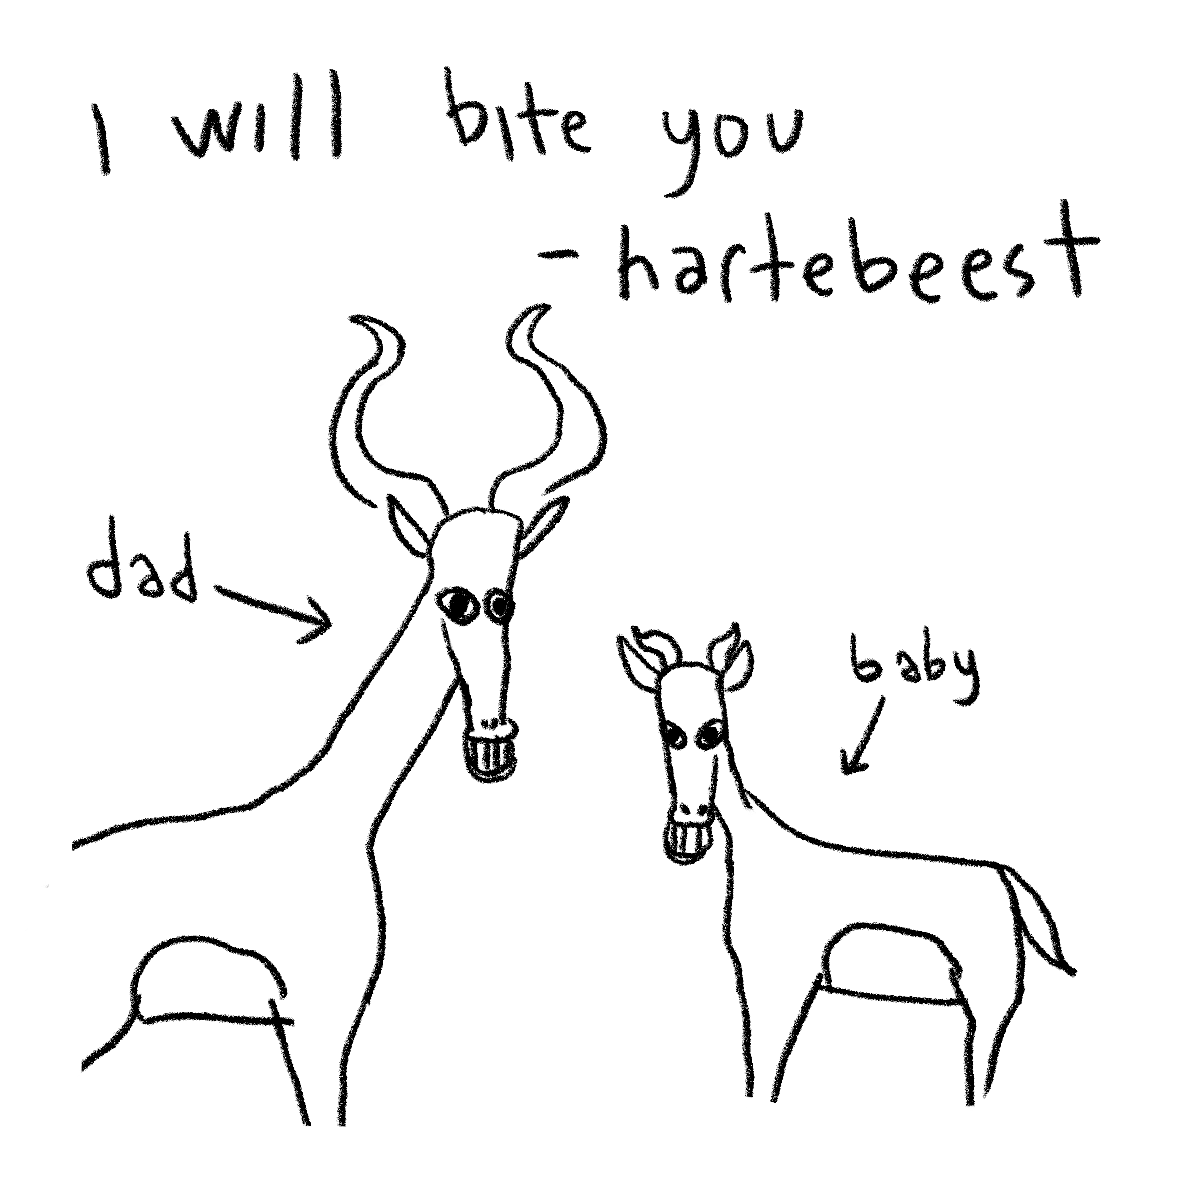 I will bite you
- hartebeest
dad
baby